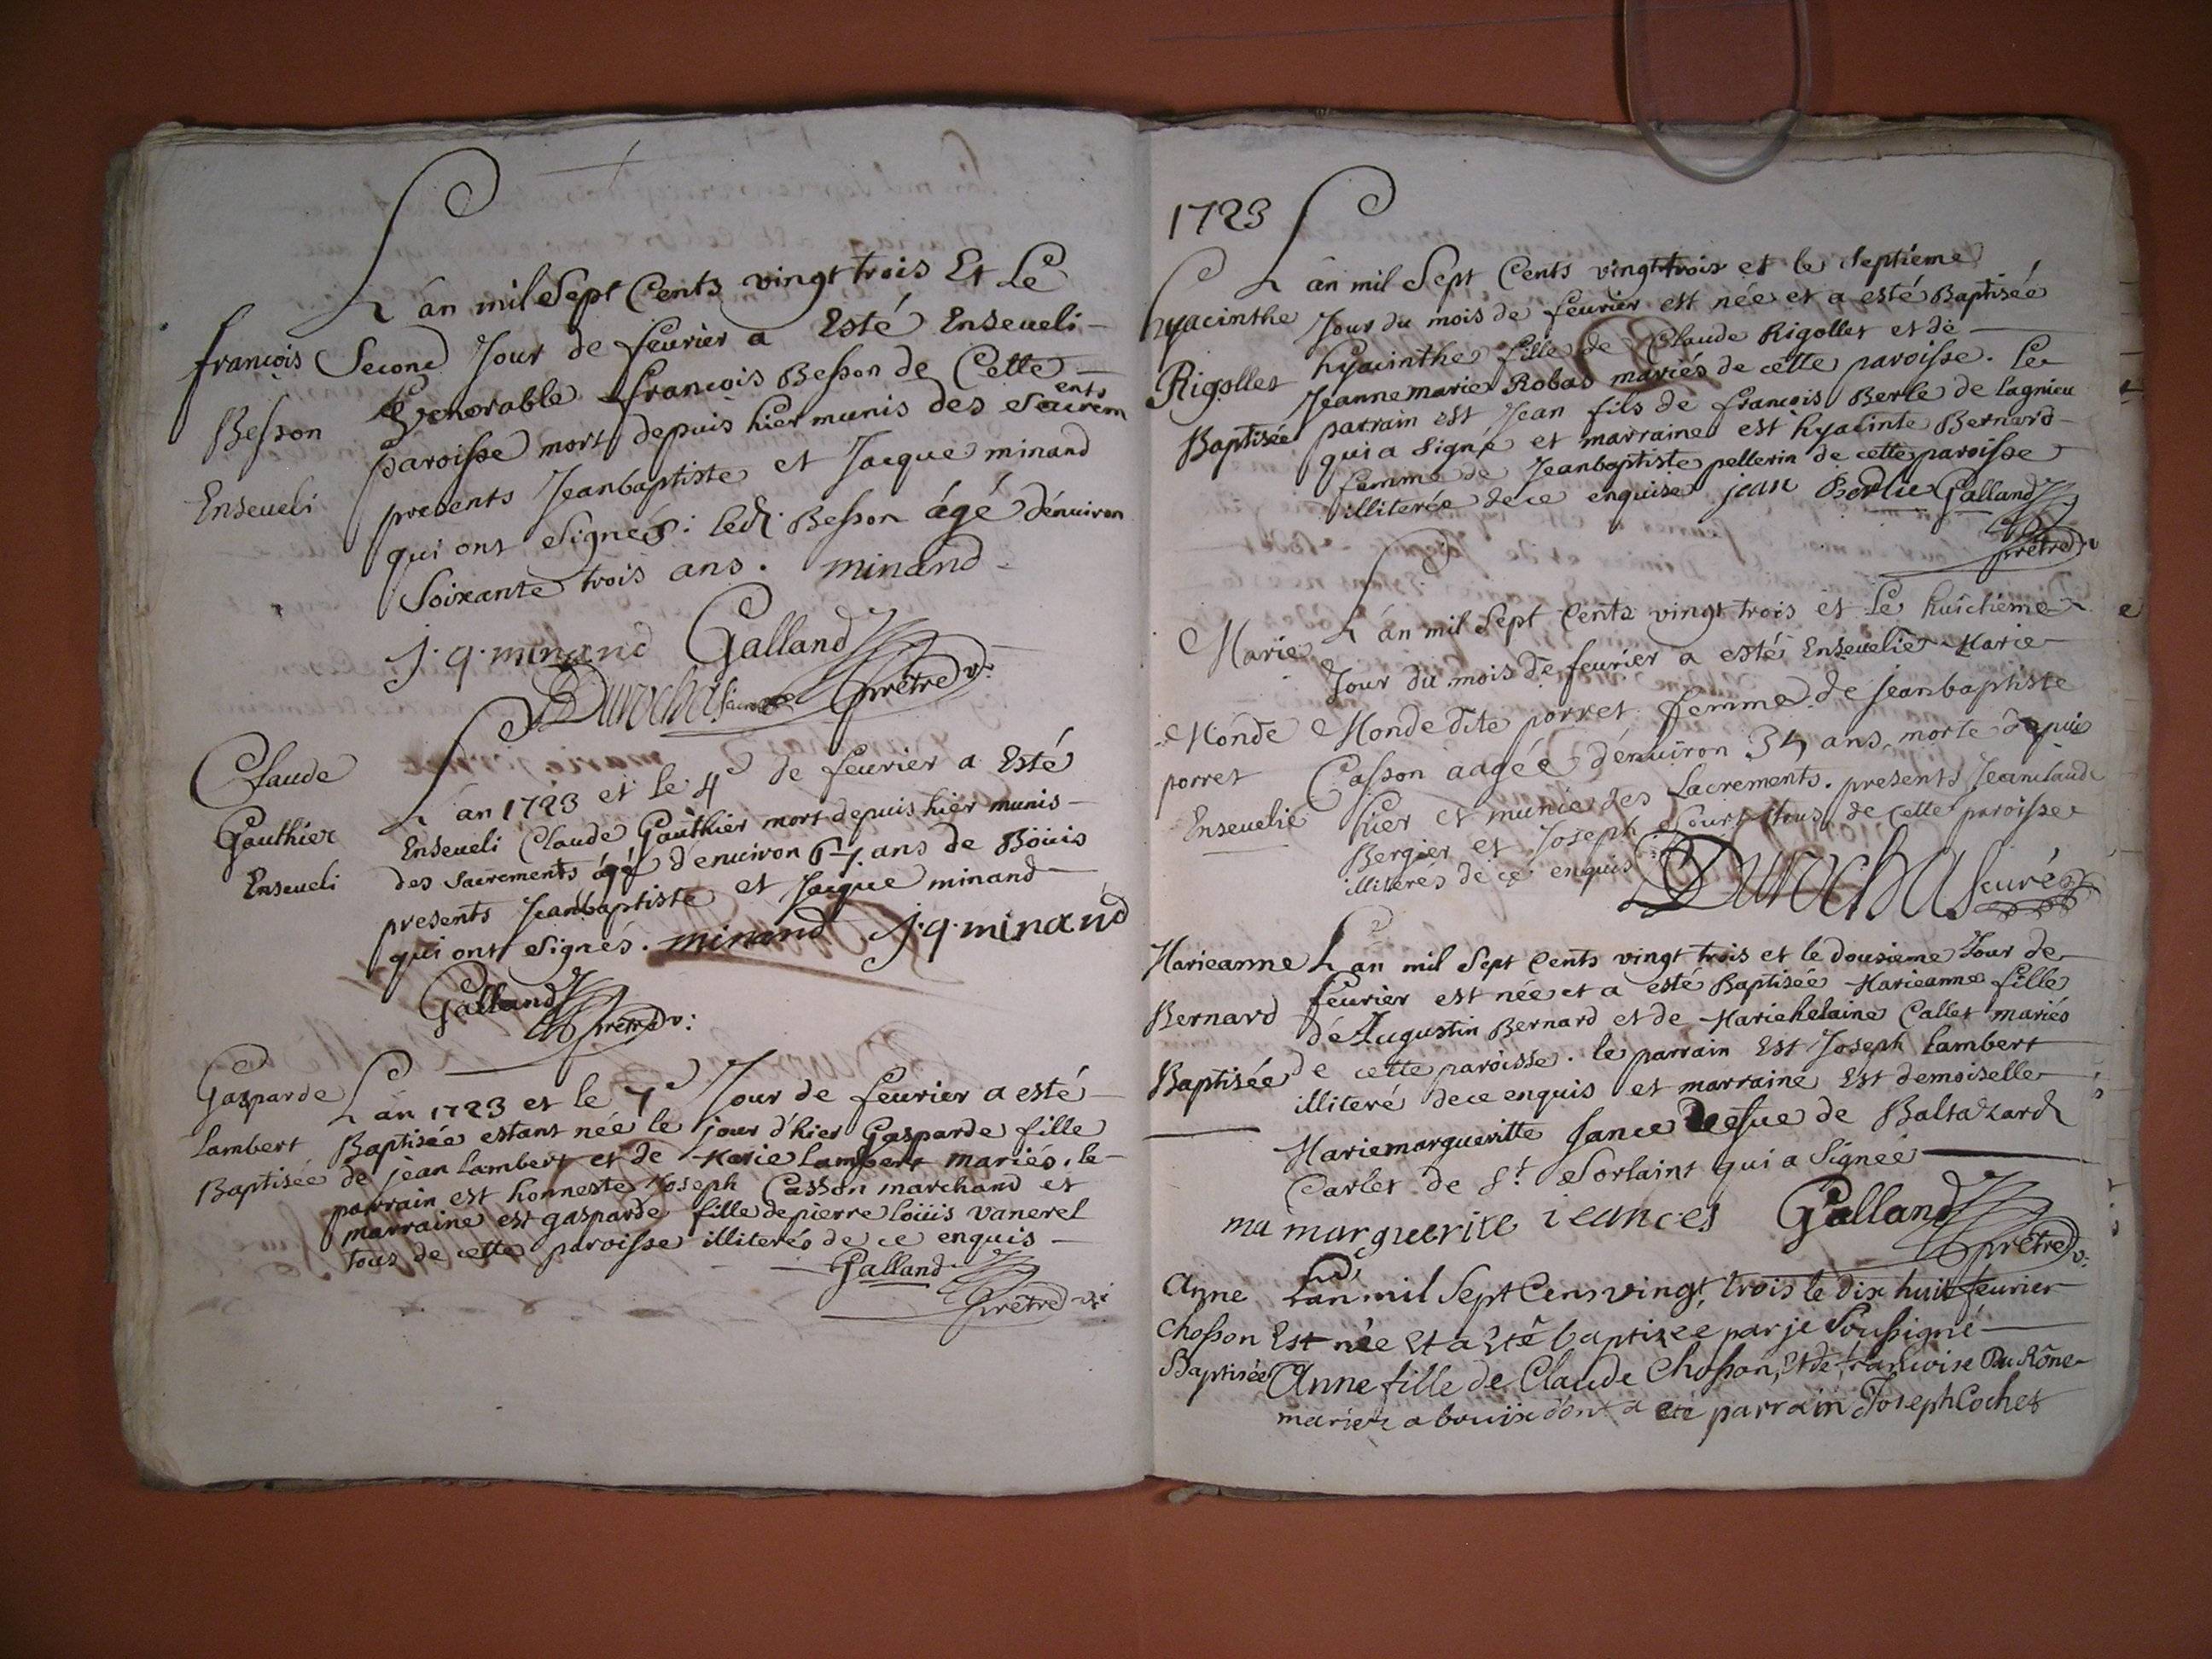 L'an mil Sept Cents vingt trois Et Le
françois Second Jour de feurier a Esté Enseueli
Besson Venerable françois Besson de Cette
Enseueli paroisse mort depuis hier munis des Sacrements
presents Jeanbaptiste et Jacque minand
qui ont Signés. led. Besson âgé dénuiron
Soixante trois ans. minand
J. q. minand Galland
Durochas curé prêtre v.
Claude
L'an 1723 et le 4e de feurier a Esté
Gauthier Enseueli Claude Gauthier mort depuis hier munis
Enseueli des Sacrements âgé d'enuiron ans de Böuis
presents Jeanbaptiste et Jacque minand
qui ont Signés. minand J. q. minand
Galland
prêtre v.
Gasparde L'an 1723 et le 7e Jour de feurier a esté
Lambert Baptisée estant née le jour d'hier Gasparde fille
Baptisée de jean Lambert et de Marie Lambert mariés. le
parrain est honneste Joseph Casson marchand et
marraine est gasparde fille de pierre loüis vanerel
tous de cette paroisse illiterés de ce enquis
Galland
prêtre v.
1723
L'an mil Sept Cents vingt trois et le Septiéme
hyacinthe Jour du mois de feurier est née et a esté Baptisée
hyacinthe fille de Claude Rigollet et de
Rigollet Jeanne marie Robas mariés de cette paroisse. Le
parrain est Jean fils de françois Berle de Lagnieu
Baptisée qui a Signé et marraine est hyacinte Bernard
femme de Jeanbaptiste pellerin de cette paroisse
illiterée de ce enquise jean Berlie Galland
prêtre v
L'an mil Sept Cents vingt trois et Le huichiéme
Marie Jour du mois de feurier a esté Enseuelie Marie
Monde Monde dite porret femme de Jeanbaptiste
porret Casson aagée dénuiron 34 ans, morte depuis
Enseuelie hier et munie des Sacrements. presents Jeanclaude
Bergier et Joseph Court tous de cette paroisse
illiteres de ce enquis Durochas curé
Marieanne L'an mil Sept Cents vingt trois et le dousieme Jour de
feurier est née et a esté Baptisée Marieanne fille
Bernard de Augustin Bernard et de Mariehelaine Callet mariés
de cette paroisse. le parrain Est Joseph Lambert
Baptisée illiteré de ce enquis et marraine Est demoiselle
Mariemargueritte Jance de Baltazard
Carlet de St. Sorlaint qui a Signée
ma marguerite iances Galland
prêtre v.
Anne L'an mil Sept Cens vingt trois le dix huit feurier
Chosson Est née Et a Eté baptisée par je Soussigné
Baptisée Anne fille de Claude Chosson, Et de francoise Du Rône
mariez a bouis dont a eté parrain Joseph Cochet